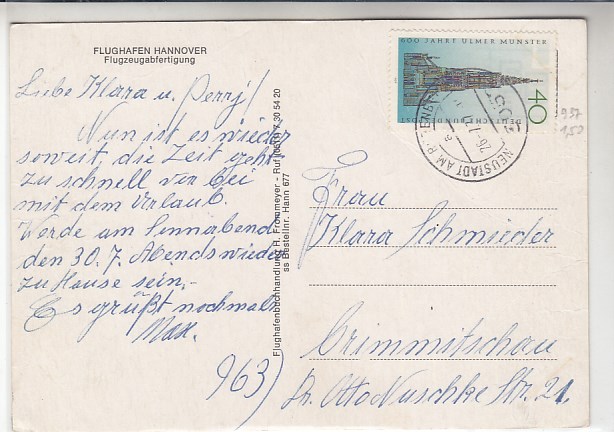 FLUGHAFEN HANNOVER
Flugzeugabfertigung
Liebe Klara u. Perry!
Nun ist es wieder
soweit, die Zeit geht
zu schnell vorbei
mit dem Urlaub.
Werde am Sonnabend
den 30.7. Abends wieder
zu Hause sein.-
Es grüßt nochmals
Max.
963)
Flughafenbuchhandlung H. Frommeyer - Ruf (0511) 7 30 54 20
ss Bestellnr. Hann 677
600 JAHRE ULMER MÜNSTER
DEUTSCHE BUNDESPOST
40
NEUSTADT AM RÜBENBERGE
937
1,50
Frau
Klara Schmieder
Crimmitschau
Dr. Otto Nuschke Str. 21.